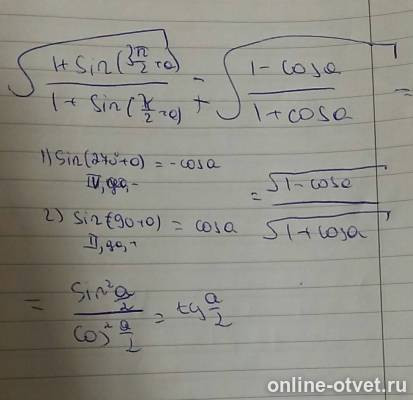 √(1+Sin(3π/2+a)) / (1+Sin(π/2+a)) = √(1-cosa) / (1+cosa) =
1) Sin(270°+a) = -cosa
IV, -
= √1-cosa / √1+cosa
2) Sin(90+a) = cosa
II, +
= Sin² a/2 / Cos² a/2 = tg a/2
online-otvet.ru